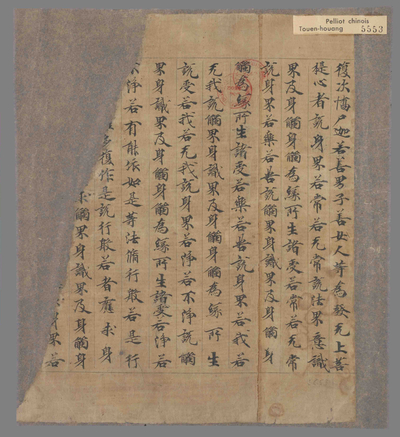 Pelliot chinois
Touen-houang 5553
復次憍尸迦若善男子善女人等為發无上菩
提心者說身界若常若无常說法界意識
果及身觸身觸為緣所生諸受若常若无常
說身界若樂若苦說觸界身識界及身觸身
觸為緣所生諸受若樂若苦說身界若我若
无我說觸界身識界及身觸身觸為緣所生
諸受若我若无我說身界若淨若不淨說觸
界身識界及身觸身觸為緣所生諸受若淨若
不淨若有能依如是等法脩行般若是行
復作是說行般若者應求身
求觸界身識界及身觸身
身界若